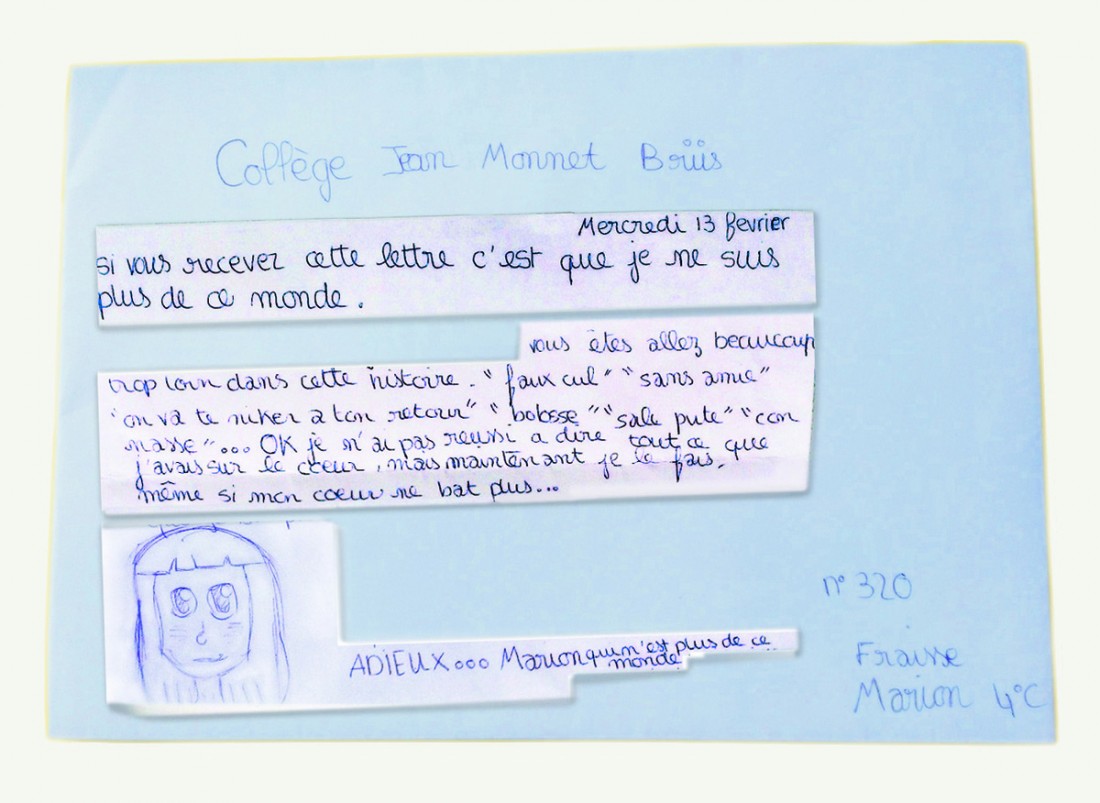 Collège Jean Monnet Briis
Mercredi 13 fevrier
si vous recevez cette lettre c'est que je ne suis
plus de ce monde.
vous êtes allez beaucoup
trop loin dans cette histoire. "faux cul" "sans amie"
"on va te niker a ton retour" "bolosse" "sale pute" "con
nasse"... OK je n'ai pas reussi a dire tout ce que
j'avais sur le cœur, mais maintenant je le fais,
même si mon coeur ne bat plus...
n° 320
ADIEUX... Marion qui n'est plus de ce
monde
Fraisse
Marion 4°C